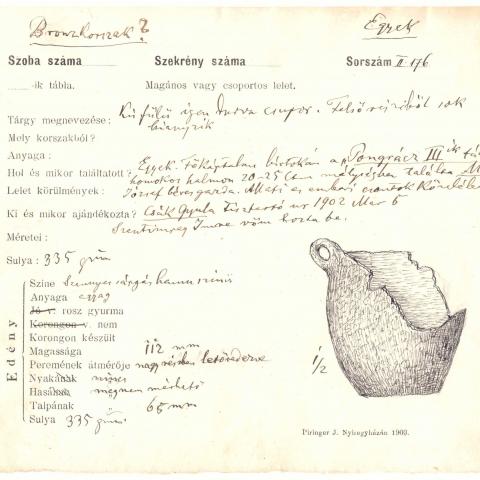 Bronzkorszak?
Egyek
Szoba száma Szekrény száma Sorszám II 176
-ik tábla. Magános vagy csoportos lelet.
Tárgy megnevezése: Kisfülű igen durva csupor. Felső részéből sok
hiányzik
Mely korszakból?
Anyaga:
Hol és mikor találtatott? Egyek. Főkáptalan birtokán a "Pongrácz III ik
homokos halmon 20-25 cm mélységben találta
Lelet körülmények: József béresgazda. Állati és emberi csontok
Ki és mikor ajándékozta? Csák Gyula Tisztartó úr 1902 Mar 6
Szentimrey Imre vőm hozta be.
Méretei:
Sulya: 335 grm
Edény
Színe Szennyes sárgás hamu színű
Anyaga agyag
Jó v. rosz gyurma
Korongon v. nem
Korongon készült
Magassága 112 mm
Peremének átmérője nagy részben letöredezve
Nyakának nincs
Hasának meg nem mérhető
Talpának 65 mm
Sulya 335 grm
1/2
Piringer J. Nyiregyházán 1900.